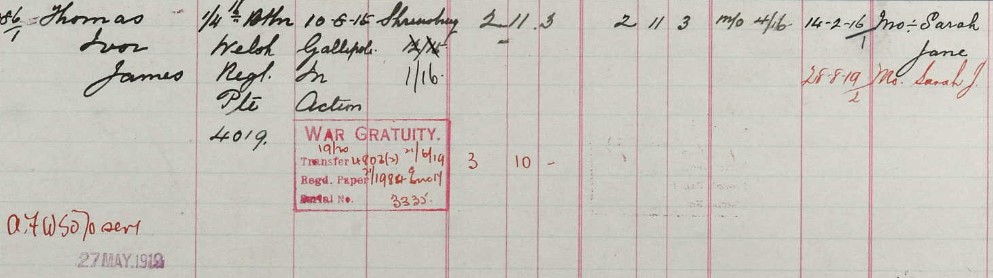 86/1 Thomas 1/4th Bttn 10-8-15 Shrewsbury 2 11 3 2 11 3 m/o 4/16 14-2-16/1 Mo: Sarah
Ivor Welsh Gallipoli Jane
James Regt. In 1/16 28-8-19/2 Mo. Sarah J.
Pte Action
4019.
WAR GRATUITY.
19/20
Transfer 21/6/19 3 10 -
Regd. Paper
Serial No. 3335
27 MAY.1919